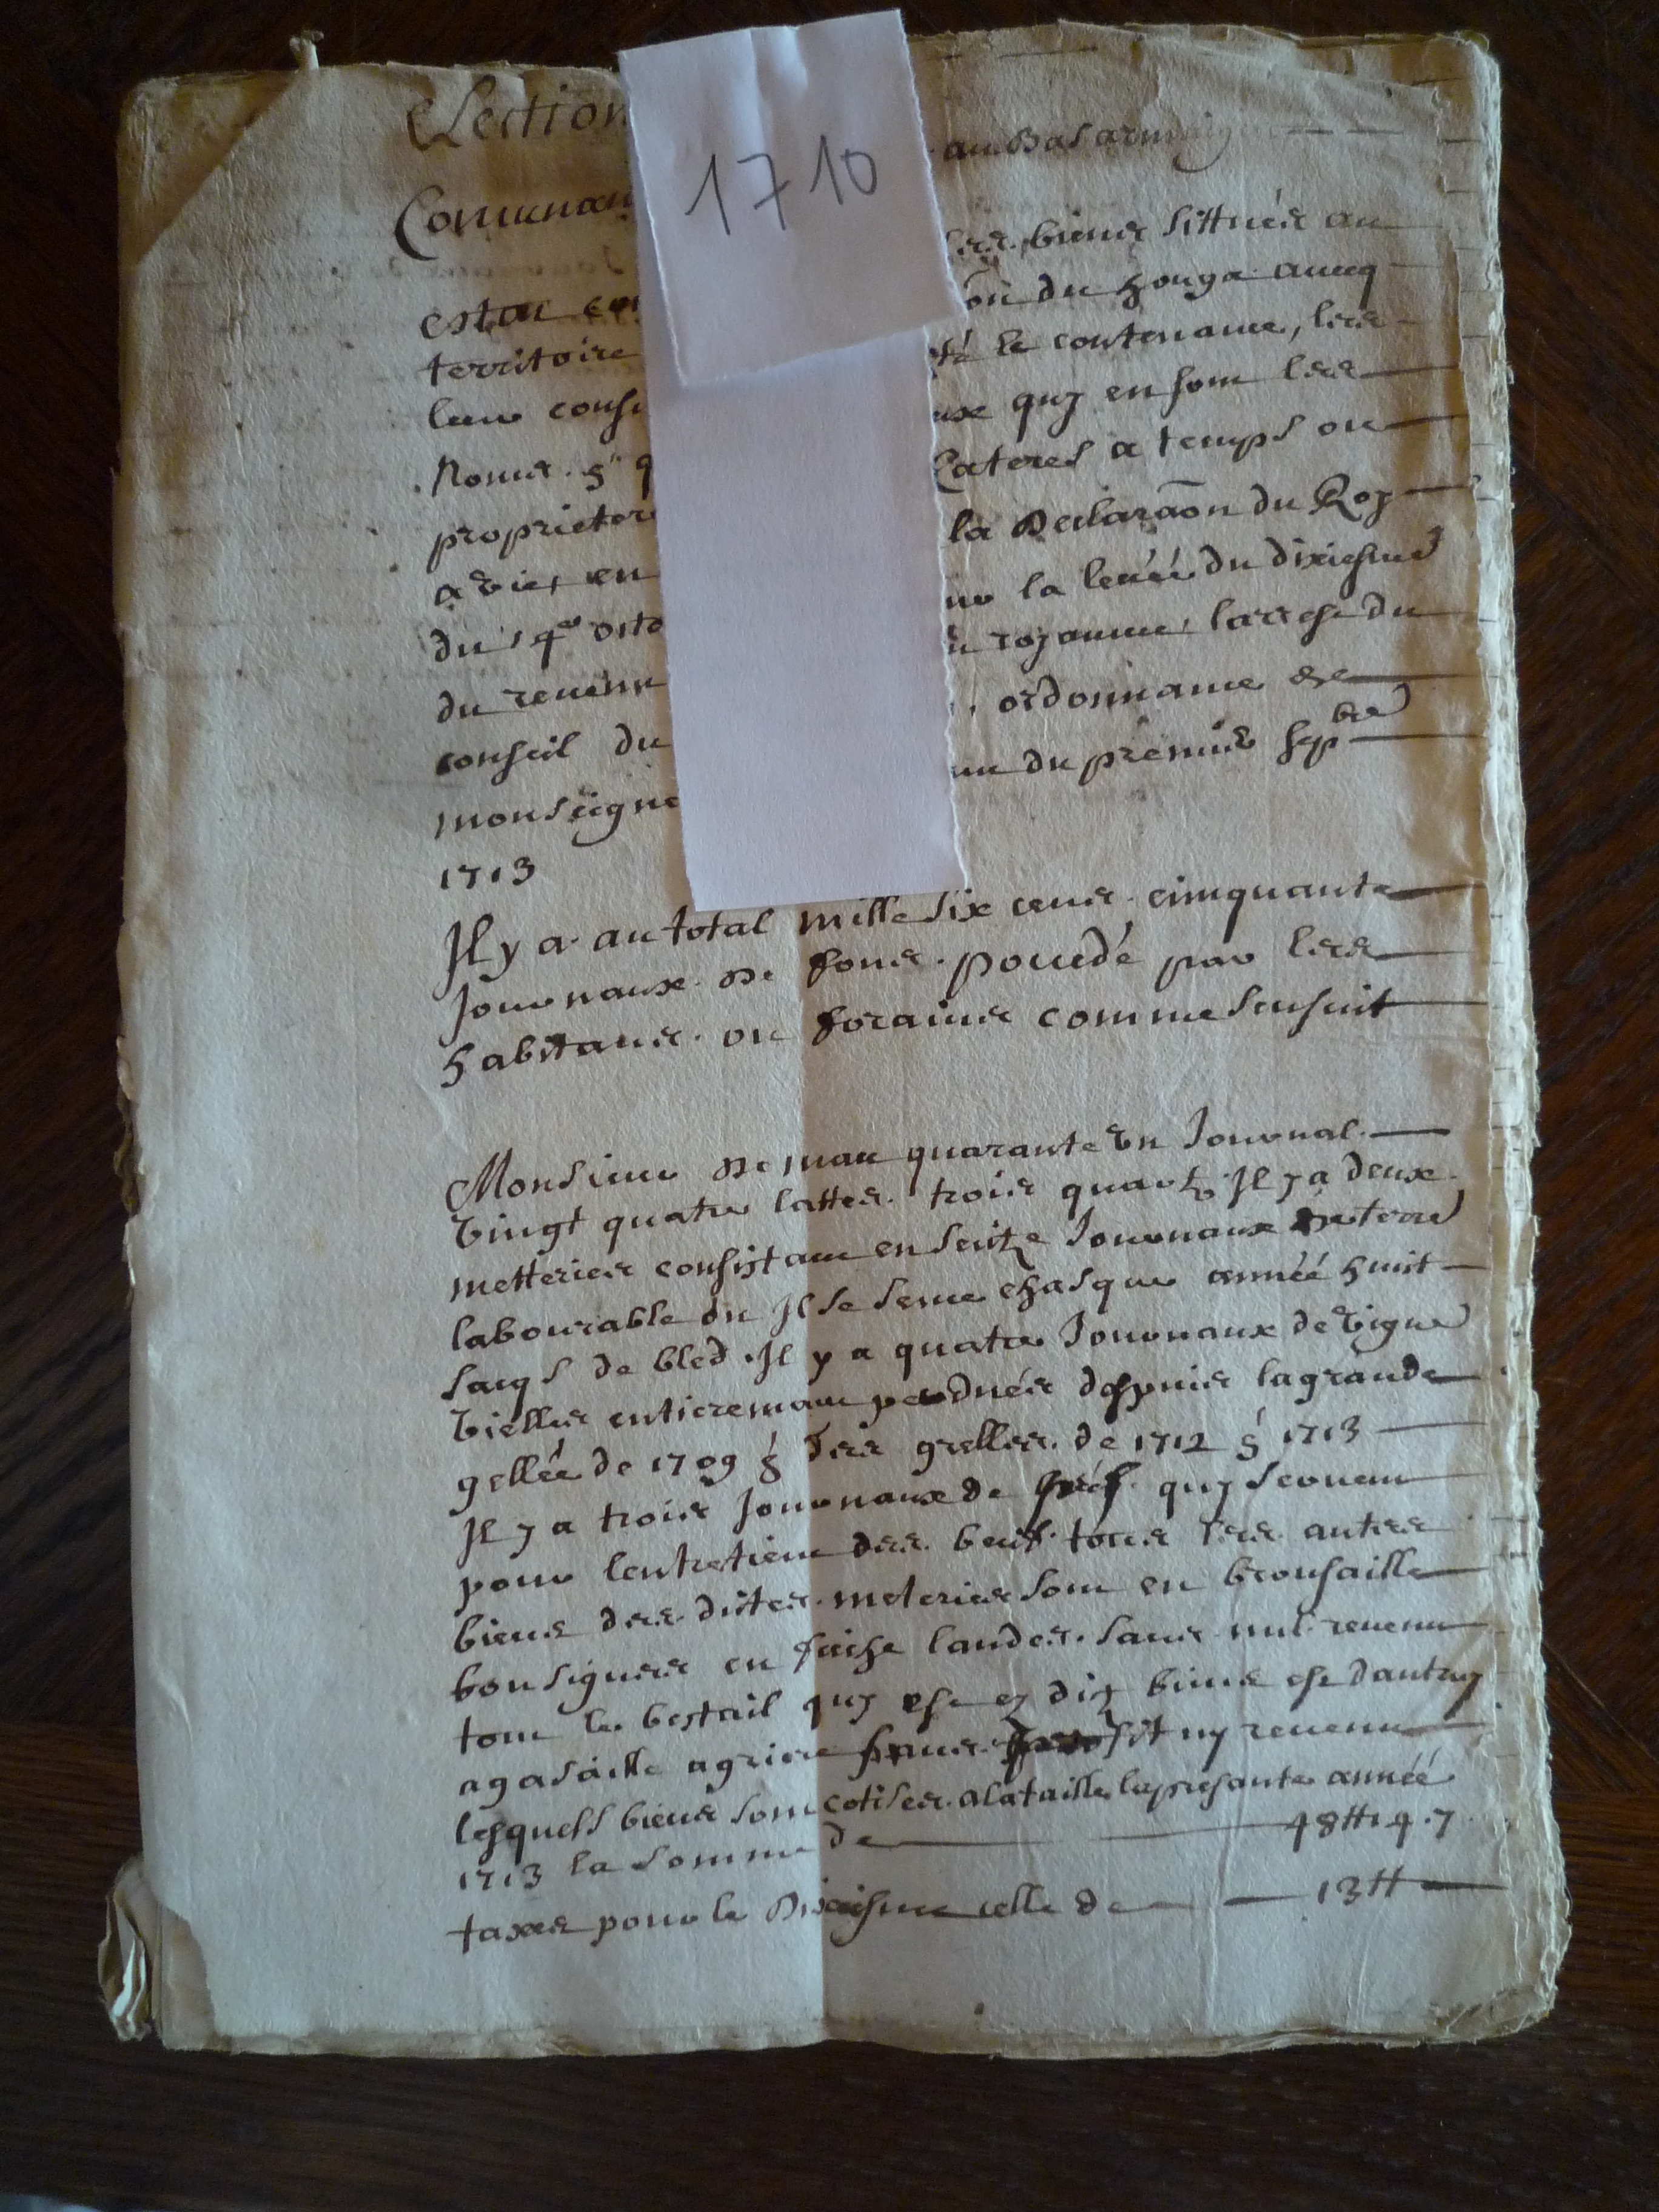 Election
au Bas armaig
1710
Comunau
estat con
les biens sittués au
territoire
on du houga auecq
leur consi
té le contenance, les
Noms &
ux quy en sont les
proprietere
lateres a temps ou
a vie, en
la Declaraõn du Roy
du 14e octo
la leuée du dixiesme
du reuenu
royaume, larrest du
conseil du
ordonnance de
monseigne
du premier sepbre
1713
Il y a au total mille six cens cinquante
Journaux de fons possedé par les
habitans ou forains comme sensuit
Monsieur de mau quarante un Journal
vingt quatre lattes trois quartz Il y a deux
metteries consistant en seitze Journaux de terre
labourable ou Il se seme chasque année huit
sacqs de bled Il y a quatre Journaux de vigne
vielles entieremant perdués despuis la grande
gellée de 1709 & des grelles de 1712 & 1713
Il y a trois Journaux de prés quy seruent
pour lentretien des beufs tous les autres
biens des dittes meteries sont en brousaille
bousigues en faiche landes sans nul reuenu
tout le bestail quy est es dits biens est dautruy
agasaille
lesquels biens sont cotises a la taille la presante année
1713 la somme de 48₶ 4. 7
taxes pour le Dixiesme celle de 13₶